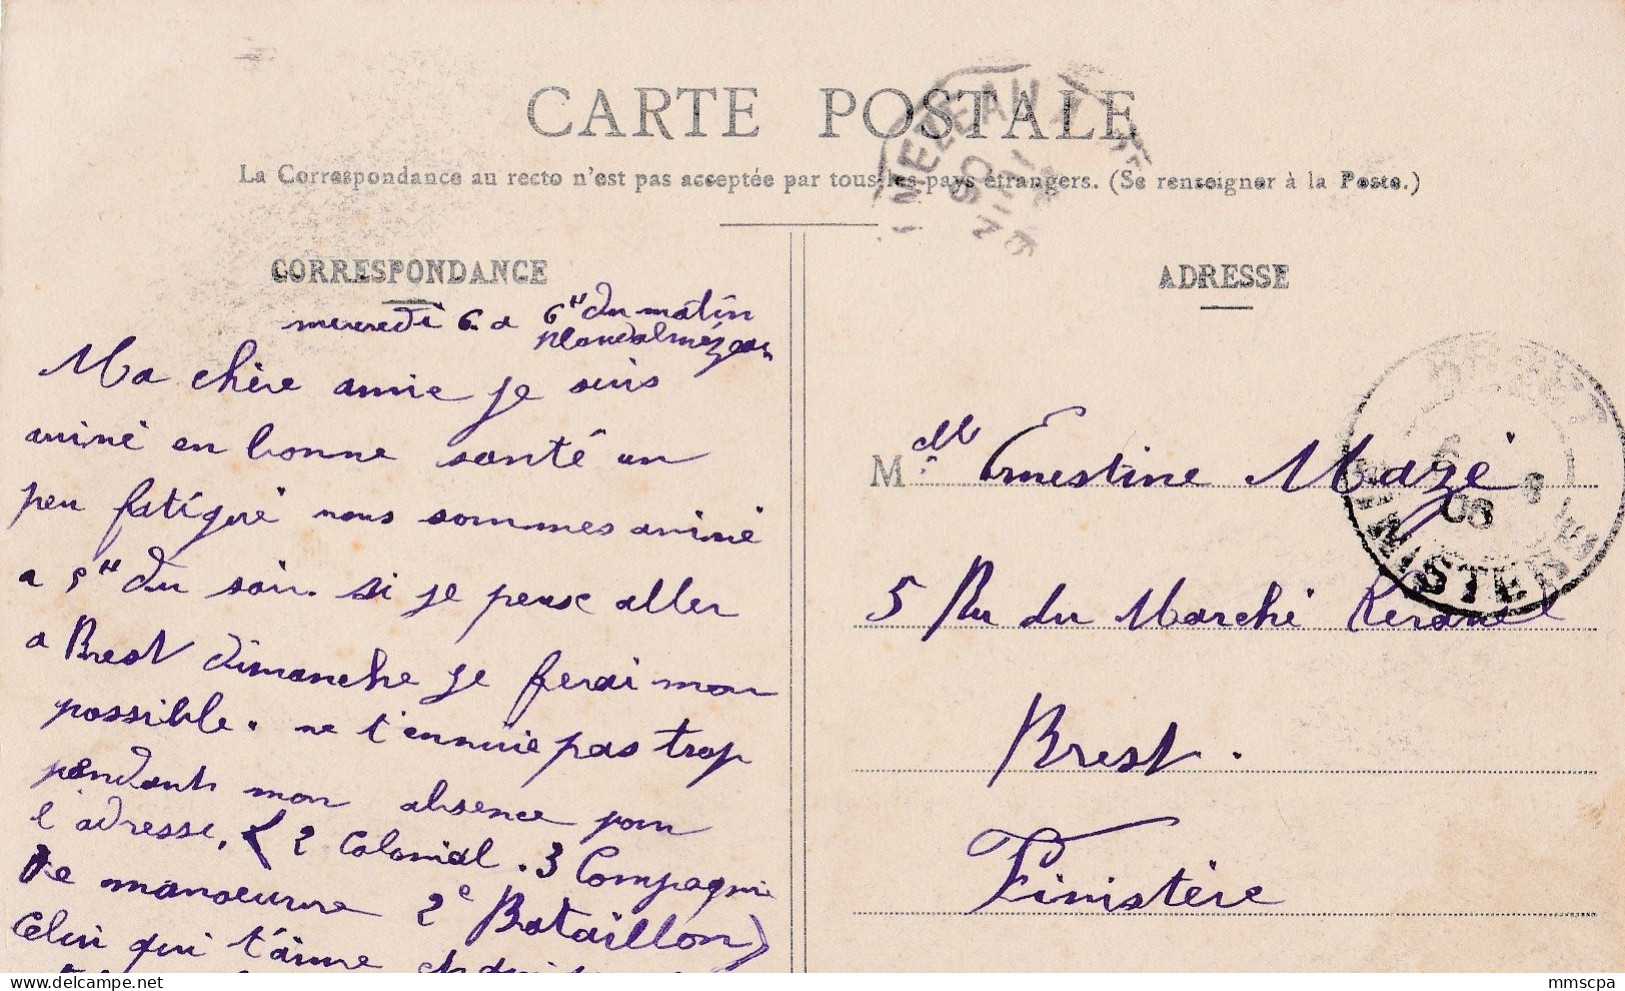 CARTE POSTALE
La Correspondance au recto n'est pas acceptée par tous les pays étrangers. (Se renseigner à la Poste.)
CORRESPONDANCE
mercredi 6 a 6 H du matin
Ploudalmézeau
Ma chère amie je suis
arrivé en bonne santé un
peu fatigué nous sommes arrivé
a 5 H du soir. si je peux aller
a Brest dimanche je ferai mon
possible. ne t'ennuie pas trop
pendant mon absence pour
l'adresse. (2 Colonial. 3 Compagnie
de manoeuvre 2e Bataillon)
Celui qui t'aime
ADRESSE
Mdlle Ernestine Mazé
5 Ru du Marché Keravel
Brest.
Finistère
MEZEAU
BREST
6 8
08
FINISTERE
mmscpa